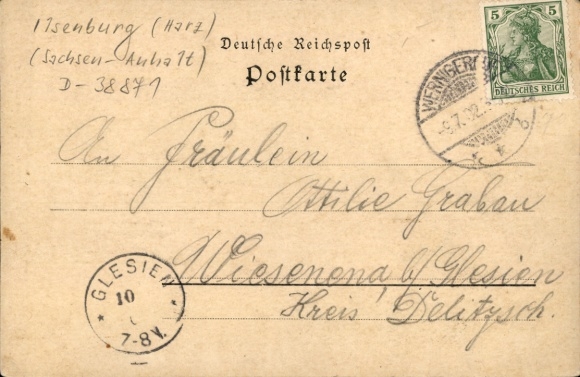 Ilsenburg (Harz)
(Sachsen-Anhalt)
D-38871
Deutsche Reichspost
Postkarte
5 5
DEUTSCHES REICH
WERNIGERODE
7.02.
An Fräulein
Ottilie Grabau
Wiesenena b/Glesien
Kreis Delitzsch.
GLESIEN
10
7-8V.